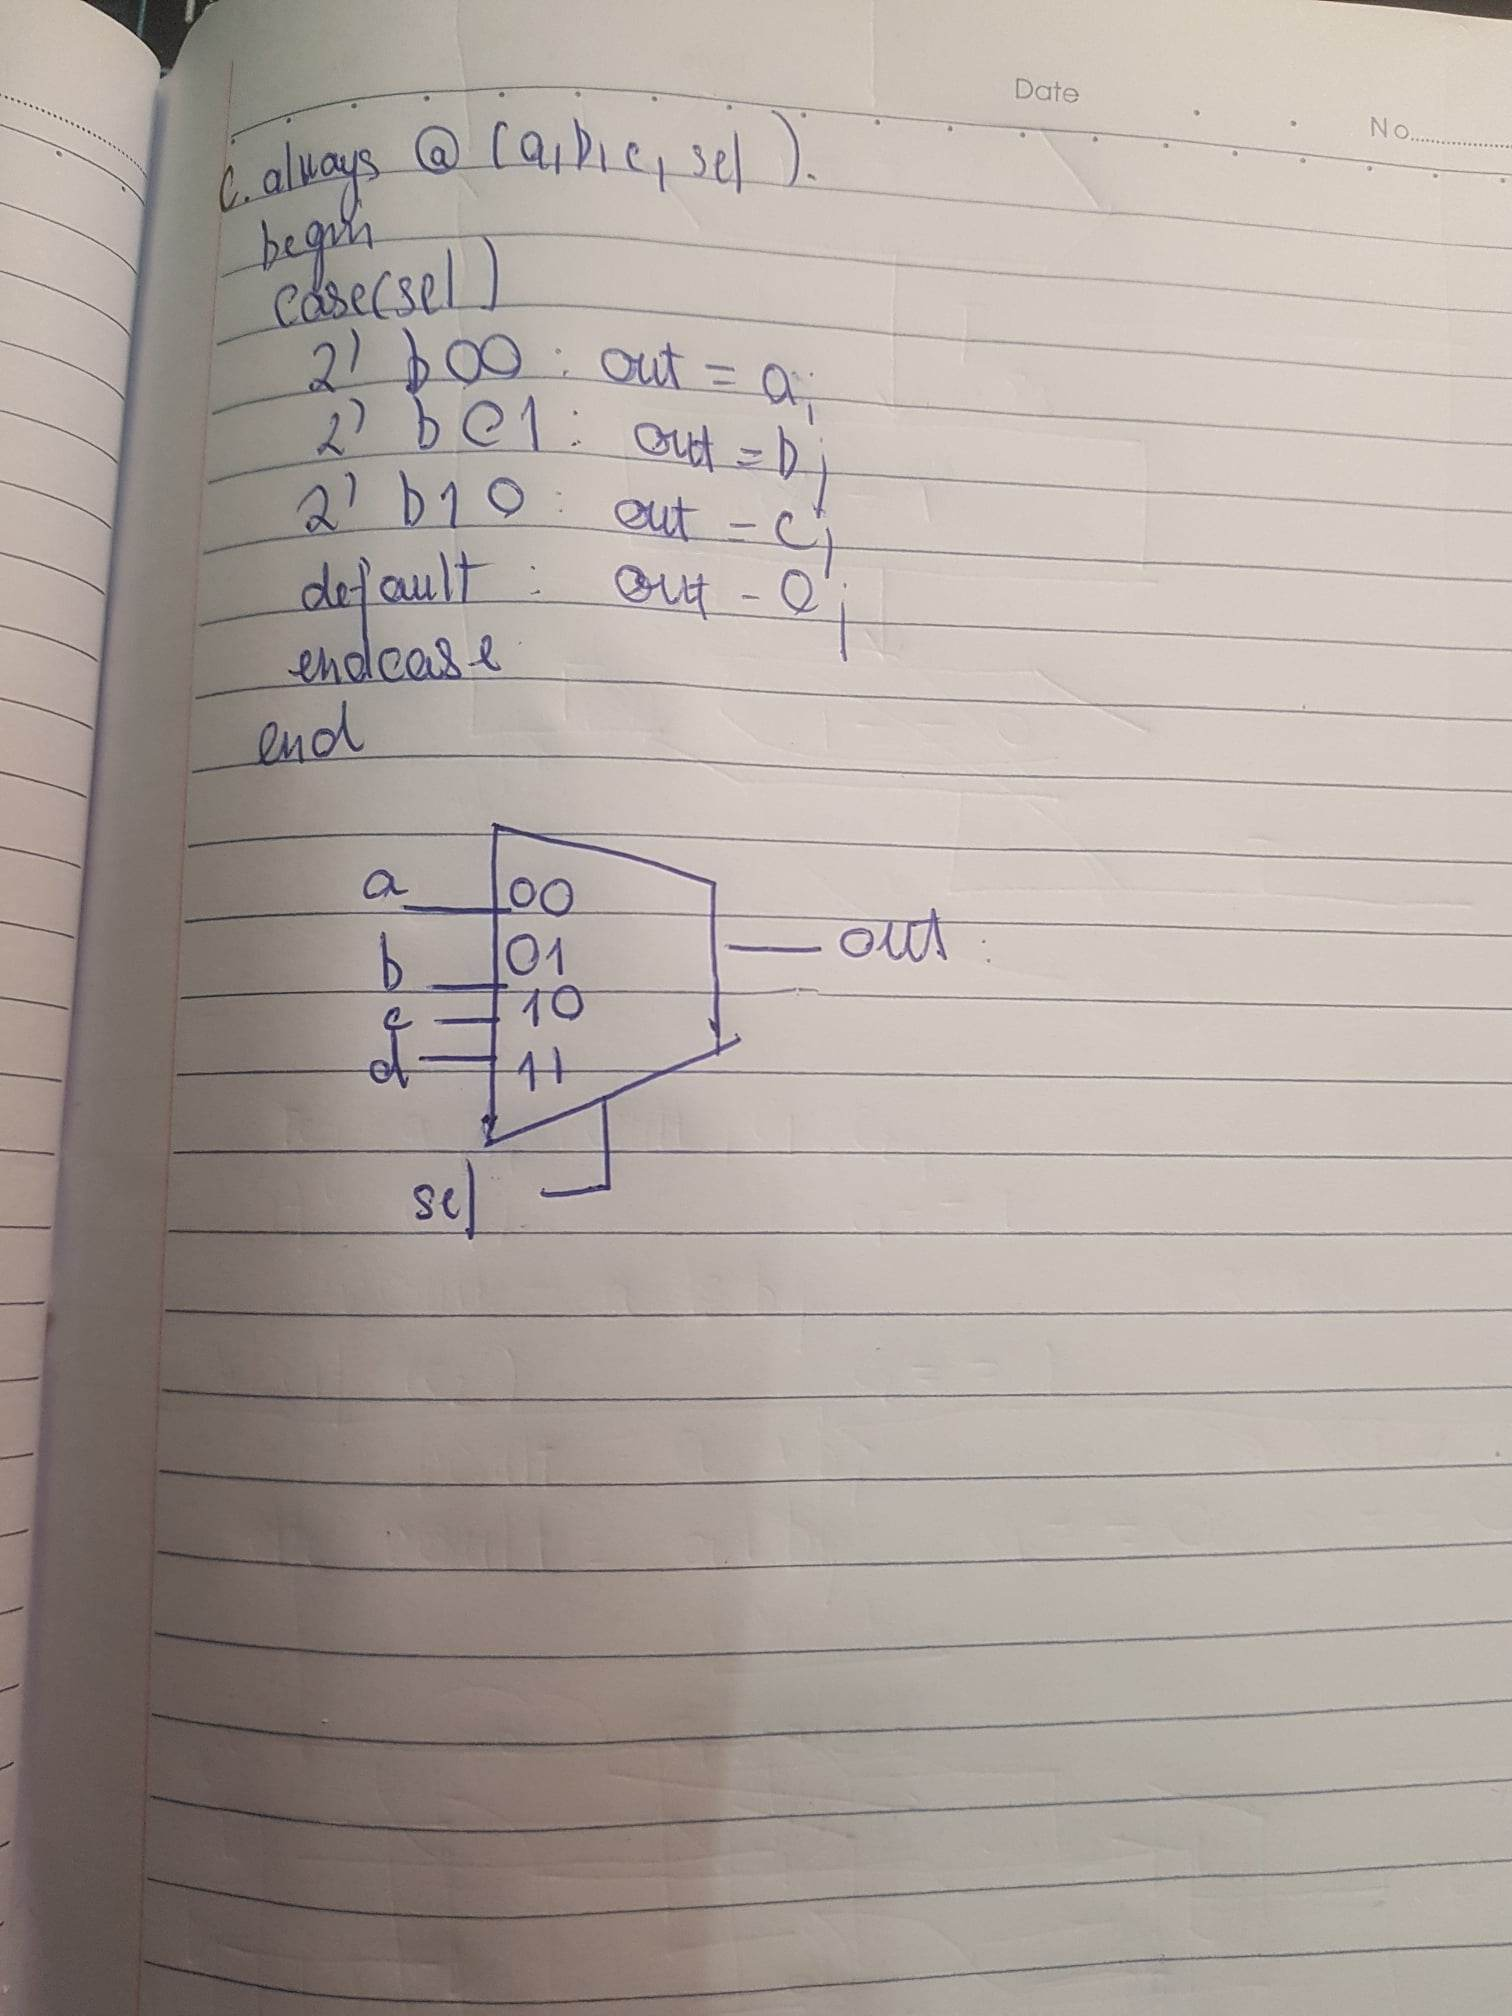 Date
No.
c. always @ (a,b,c, sel).
begin
case(sel)
2' b00 : out = a;
2' b01 : out = b;
2' b10 : out = c;
default : out - 0;
endcase
end
a 00
b 01 out
c 10
d 11
sel